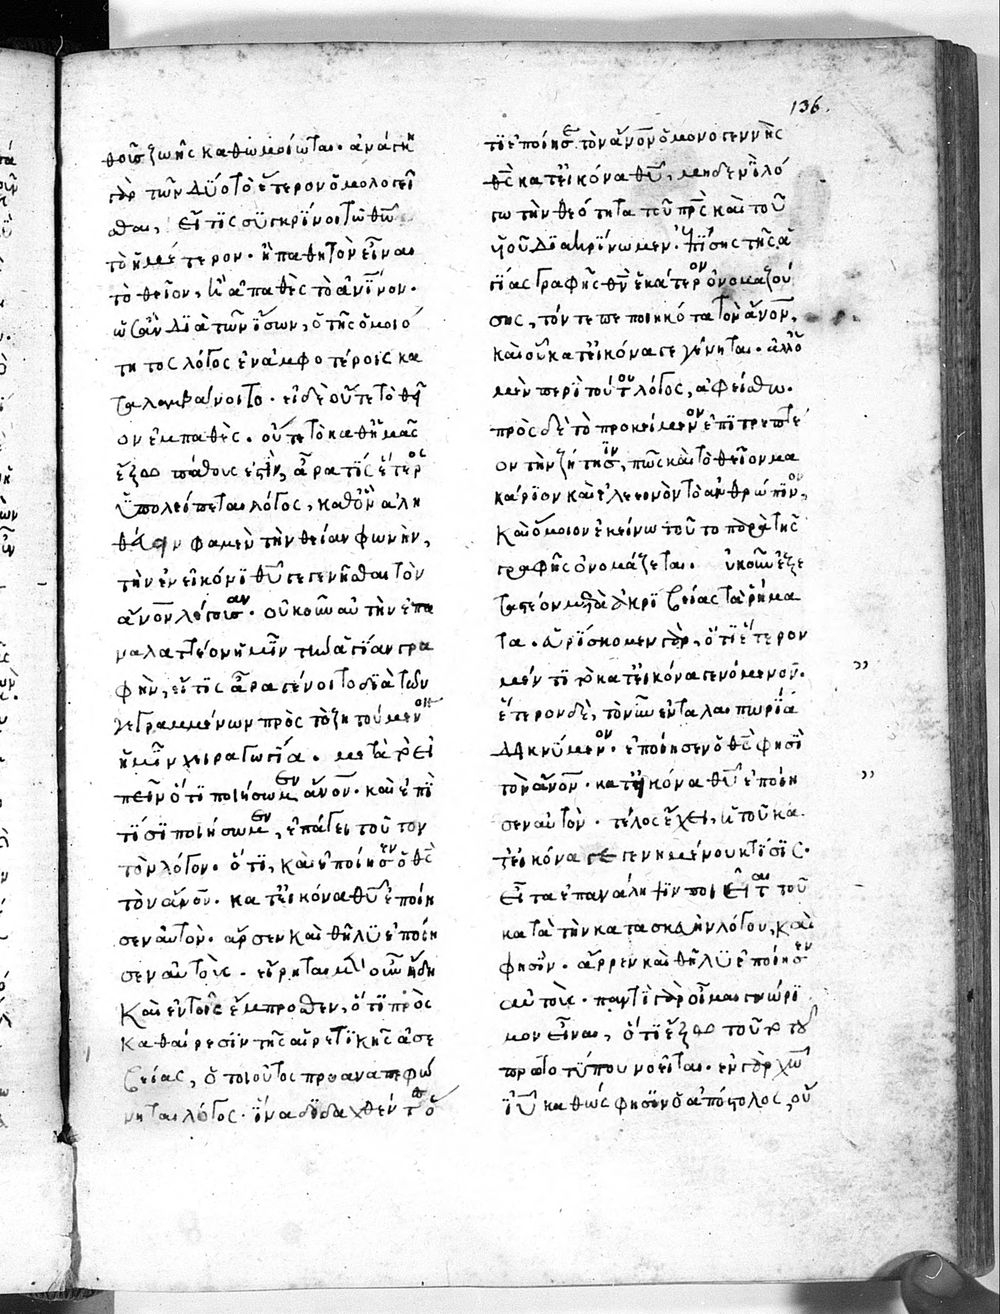 136
θου ζωῆς καθωμοίωται. ἀνάγκη
γὰρ τῶν δύο τὸ ἕτερον ὁμολογεῖ
σθαι, εἴ τις συγκρίνοι τῶ θείω
τὸ ἡμέτερον. ἢ παθητὸν εἶναι
τὸ θεῖον, ἢ ἀπαθὲς τὸ ἀνινον.
ὡς ἂν διὰ τῶν ἴσων, ὁ τῆς ὁμοιό
τητος λόγος ἐν ἀμφοτέροις κα
ταλαμβάνοιτο. εἰ δὲ οὔτε τὸ θεῖ
ον ἐμπαθὲς. οὔτε τὸ καθ' ἡμᾶς
ἔξω πάθους ἐστὶν, ἆρα τίς ἕτερος
ὑπολείπεται λόγος, καθ' ὃν ἀλη
θεύειν φαμὲν τὴν θείαν φωνὴν,
τὴν ἐν εἰκόνι θυ γεγενῆσθαι τὸν
ἄνον λέγουσαν. οὐκοῦν αὐτὴν ἐπα
ναληπτέον ἡμῖν τὴν ἁγίαν γρα
φὴν, εἴ τις ἆρα γένοιτο διὰ τῶν
γεγραμμένων πρὸς τὸ ζητούμενον
ἡμῖν χειραγωγία. μετὰ τὸ εἰ
πεῖν ὅτι ποιήσωμεν ἄνον. καὶ ἐπὶ
τίσι ποιήσωμεν, ἐπάγει τοῦτον
τὸν λόγον. ὅτι, καὶ ἐποίησεν ὁ θς
τὸν ἄνον. κατ' εἰκόνα θυ ἐποίη
σεν αὐτὸν. ἄρσεν καὶ θῆλυ ἐποίη
σεν αὐτοὺς. εἴρηται μὲν οὖν ἤδη
καὶ ἐν τοῖς ἔμπροσθεν, ὅτι πρὸς
καθαίρεσιν τῆς αἱρετικῆς ἀσε
βείας, ὁ τοιοῦτος προαναπεφώ
νηται λόγος. ἵνα διδαχθέντες ὅ
τι ἐποίησε τὸν ἄνον ὁ μονογεννὴς
θς κατ' εἰκόνα θυ, μηδενὶ λό
γω τὴν θεότητα τοῦ πρς καὶ τοῦ
υἱοῦ διακρίνωμεν. ἐπίσης τῆς ἁ
γίας γραφῆς θν ἑκάτερον ὀνομαζού
σης, τόν τε πεποιηκότα τὸν ἄνον,
καὶ οὗ κατ' εἰκόνα γεγένηται. ἀλλ' ὁ
μὲν περὶ τούτου λόγος, ἀφείσθω.
πρὸς δὲ τὸ προκείμενον ἐπιτρεπτέ
ον τὴν ζήτησιν, πῶς καὶ τὸ θεῖον μα
κάριον καὶ ἐλεεινὸν τὸ ἀνθρώπινον,
καὶ ὅμοιον ἐκείνω τοῦτο παρὰ τῆς
γραφῆς ὀνομάζεται. οὐκοῦν ἐξε
ταστέον μετὰ ἀκριβείας τὰ ῥήμα
τα. εὑρίσκομεν γὰρ, ὅτι ἕτερον
μέν τι τὸ κατ' εἰκόνα γενόμενον.
ἕτερον δὲ, τὸ νῦν ἐν ταλαιπωρία
δεικνύμενον. ἐποίησεν ὁ θς φησὶ
τὸν ἄνον. κατ' εἰκόνα θυ ἐποίη
σεν αὐτὸν. τέλος ἔχει, ἡ τοῦ κα
τ' εἰκόνα γεγενημένου κτίσις.
εἶτα ἐπανάληψιν ποιεῖται τοῦ
κατὰ τὴν κατασκευὴν λόγου, καὶ
φησὶν. ἄρρεν καὶ θῆλυ ἐποίησεν
αὐτοὺς. παντὶ γὰρ οἶμαι γνώρι
μον εἶναι, ὅτι ἔξω τοῦτο τοῦ
πρωτοτύπου νοεῖται. ἐν γὰρ χω
ιυ καθώς φησιν ὁ ἀπόστολος, οὔ